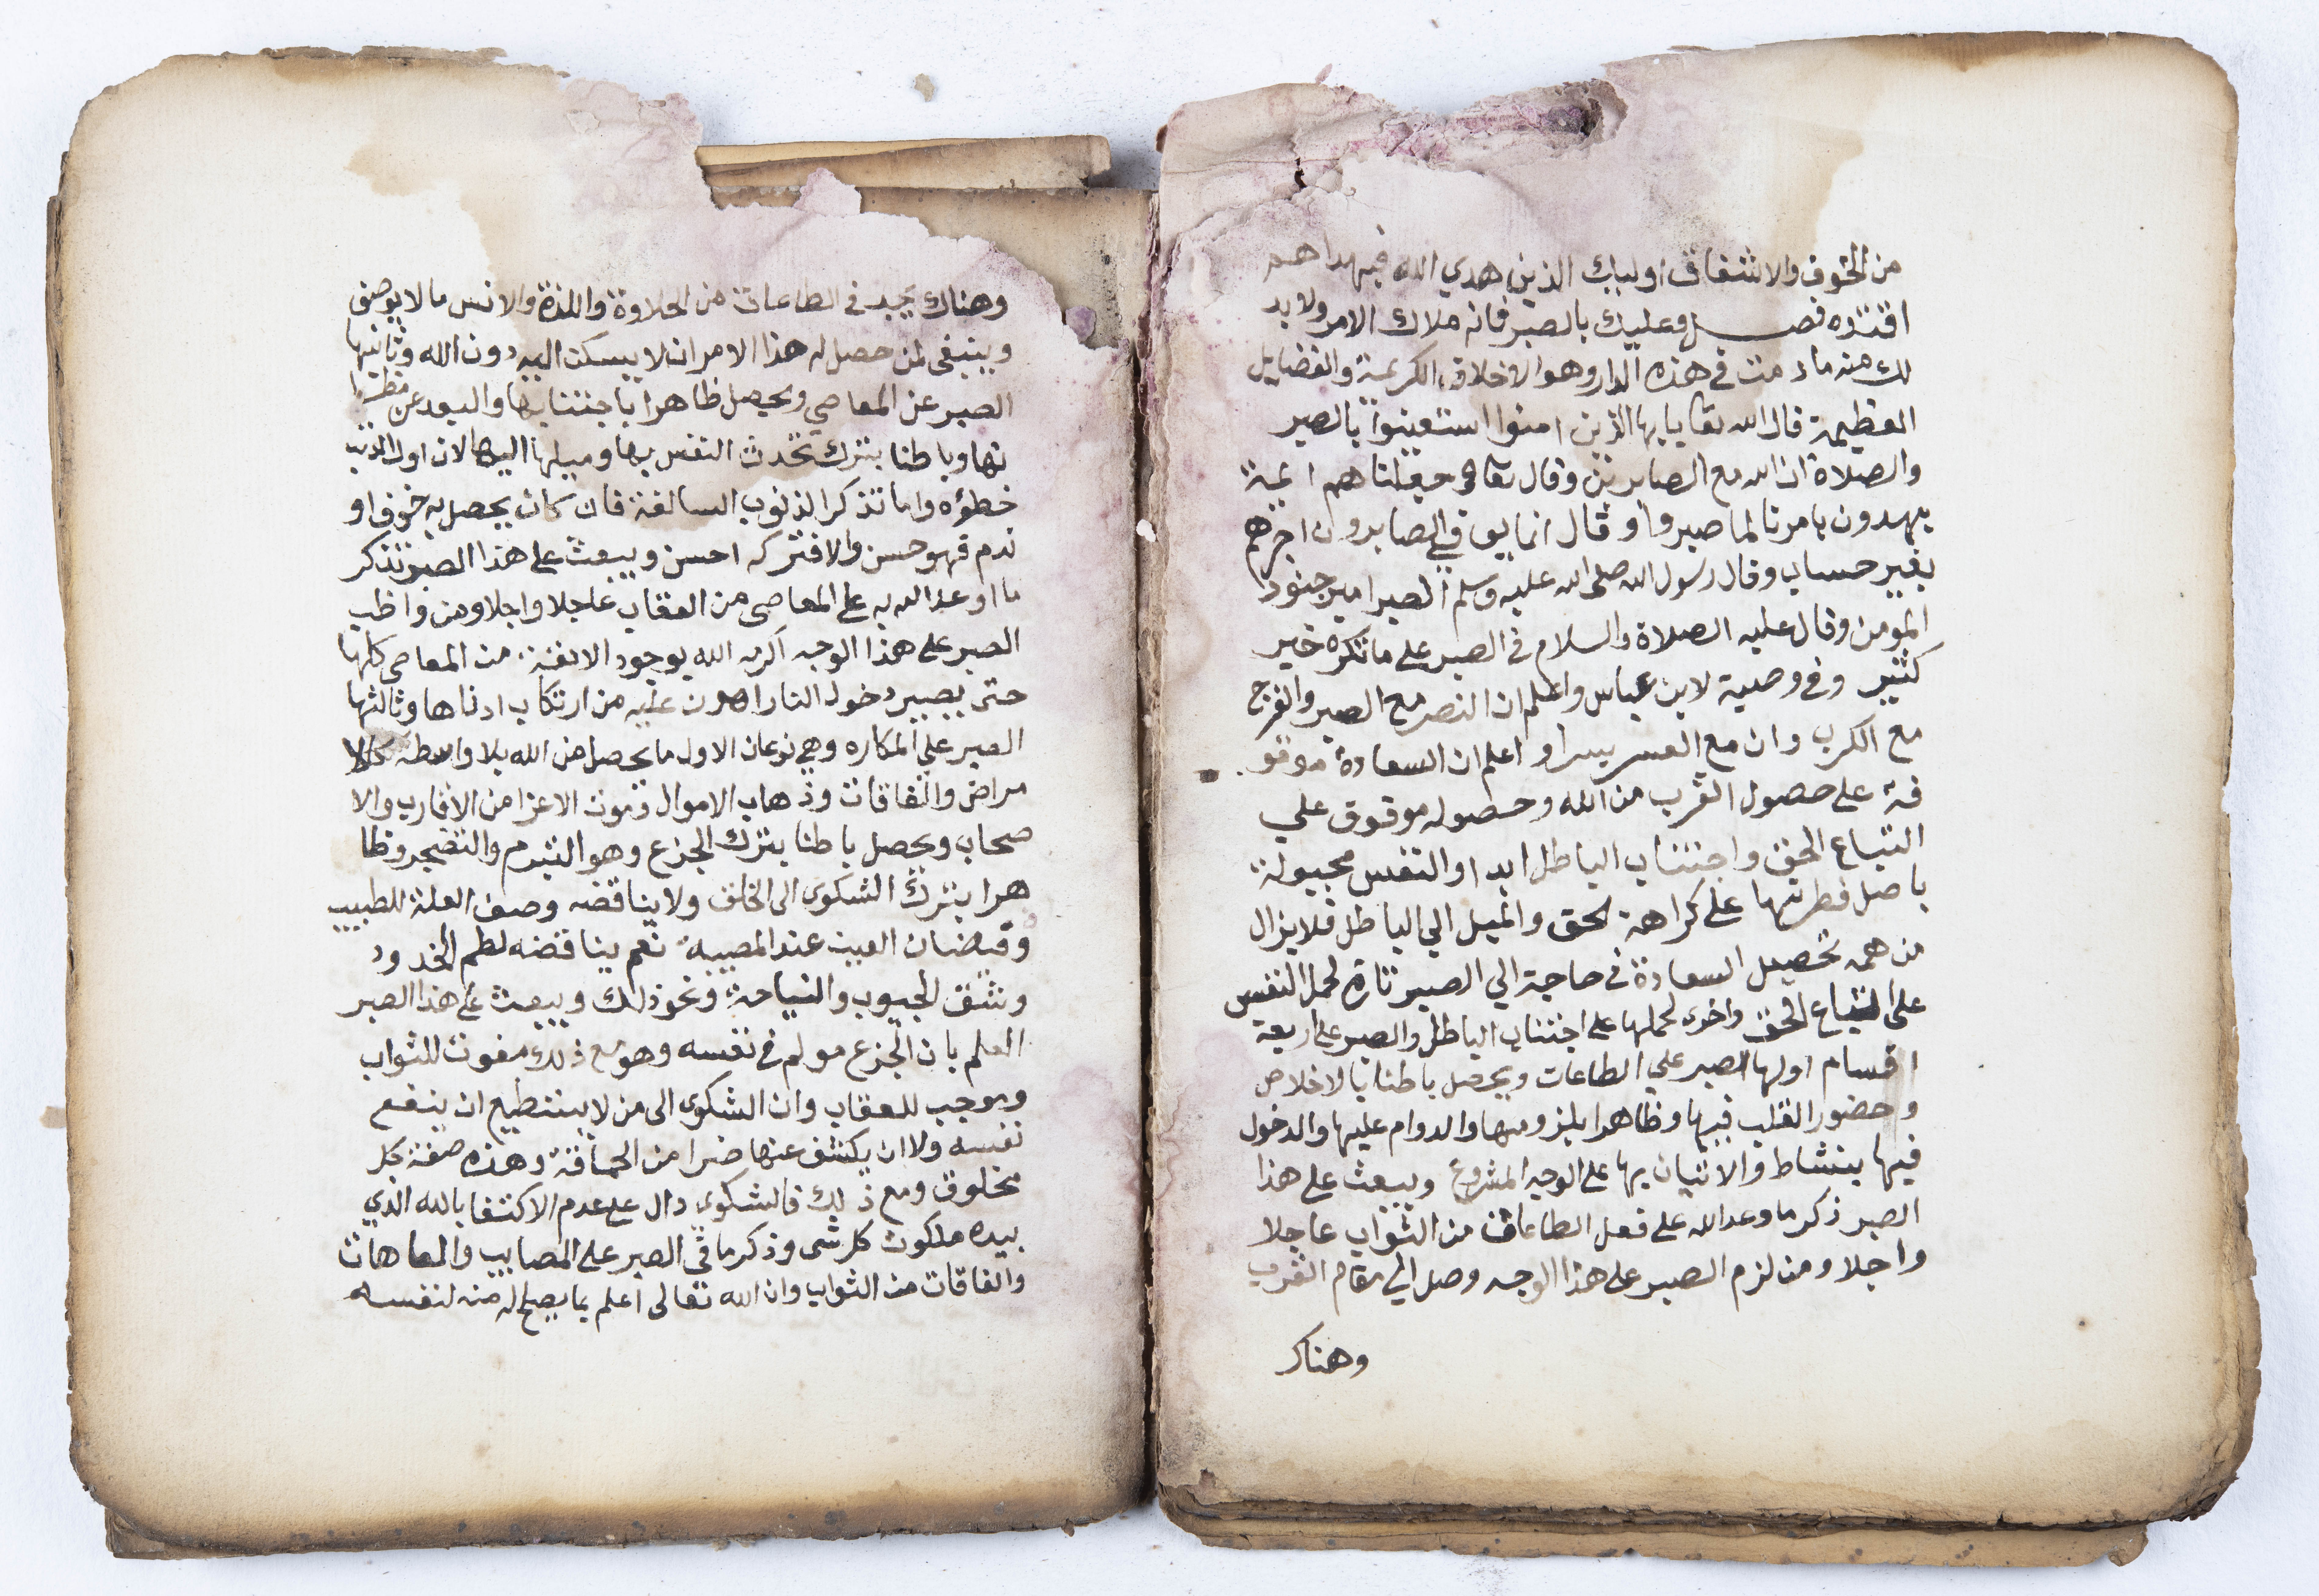 من الخوف والاشفاق اوليك الذين هدي الله فبهداهم
اقتده فصل وعليك بالصبر فانه ملاك الامر ولا بد
لك منه ما دمت في هذه الدار وهو الاخلاق الكريمة والفضايل
العظيمة قال الله تعا يايها الذين امنوا استعينوا بالصبر
والصلاة ان الله مع الصابرين وقال تعا وجعلناهم ايمة
يهدون بامرنا لما صبروا وقال انما يوفي الصابرون اجرهم
بغير حساب وقال رسول الله صلى الله عليه وسلم الصبر امير جنود
المومن وقال عليه الصلاة والسلام في الصبر على ما تكره خير
كثير وفي وصية لابن عباس واعلم ان النصر مع الصبر والفرج
مع الكرب وان مع العسر يسرا واعلم ان السعادة موقو
فة على حصول القرب من الله وحصوله موقوف علي
اتباع الحق واجتناب الباطل ابدا والنفس مجبولة
باصل فطرتها على كراهة الحق والميل الي الباطل فلا يزال
من همه تحصيل السعادة في حاجة الي الصبر تارة لحمل النفس
على اتباع الحق واخرى لحملها على اجتناب الباطل والصبر على اربعة
اقسام اولها الصبر علي الطاعات ويحصل باطنا بالاخلاص
وحضور القلب فيها وظاهرا بلزومها والدوام عليها والدخول
فيها بنشاط والاتيان بها على الوجه المشروع ويبعث على هذا
الصبر ذكر ما وعد الله على فعل الطاعات من الثواب عاجلا
واجلا ومن لزم الصبر على هذا الوجه وصل الي مقام القرب
وهناك
وهناك يجد في الطاعات من الحلاوة واللذة والانس ما لا يوصف
وينبغي لمن حصل له هذا الامر ان لا يسكن اليه دون الله وثانيها
الصبر عن المعاصي ويحصل ظاهرا باجتنابها والبعد عن مظا
نها وباطنا بترك تحدث النفس بها وميلها اليها لان اول الذنب
خطؤه واما تذكر الذنوب السالفة فان كان يحصل به خوف او
ندم فهو حسن والا فتركه احسن ويبعث على هذا الصبر تذكر
ما اوعد الله به على المعاصي من العقاب عاجلا واجلا ومن واظب
الصبر على هذا الوجه اكرمه الله بوجود الانفة من المعاصي كلها
حتى يصير دخول النار اهون عليه من ارتكاب ادناها وثالثها
الصبر علي المكاره وهي نوعان الاول ما يحصل من الله بلا واسطة كالا
مراض والفاقات وذهاب الاموال وموت الاعزا من الاقارب والا
صحاب ويحصل باطنا بترك الجزع وهو التبرم والتضجر وظا
هرا بترك الشكوى الى الخلق ولا يناقضه وصف العلة للطبيب
وفيضان العين عند المصيبة نعم يناقضه لطم الخدود
وشق الجيوب والنياحة ونحو ذلك ويبعث على هذا الصبر
العلم بان الجزع مولم في نفسه وهو مع ذلك مفوت للثواب
وموجب للعقاب وان الشكوى الى من لا يستطيع ان ينفع
نفسه ولا ان يكشف عنها ضرا من الحماقة وهذه صفة كل
مخلوق ومع ذلك فالشكوي دال على عدم الاكتفا بالله الذي
بيده ملكوت كل شي وذكر ما في الصبر على المصايب والعاهات
والفاقات من الثواب وان الله تعالى اعلم بما يصلح له منه لنفسه